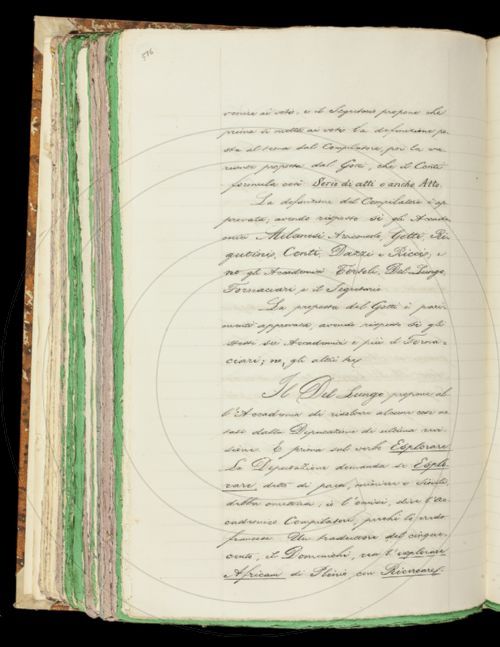 576
venire ai voti, e il Segretario propone che
prima si metta ai voti la definizione po-
sta al tema dal Compilatore, poi la va-
riante proposta dal Gotti, che il Conti
formula così Serie di atti o anche Atto.
La definizione del Compilatore è ap-
provata, avendo risposto sì gli Accade-
mici Milanesi Arciconsolo, Gotti, Ri-
gutini, Conti, Dazzi e Ricci, e
no gli Accademici Tortoli, Del Lungo,
Fornaciari e il Segretario.
La proposta del Gotti è pari-
mente approvata, avendo risposto sì gli
stessi sei Accademici e più il Forna-
ciari; no, gli altri tre.
Il Del Lungo propone al-
l'Accademia di risolvere alcuni casi
dalla Deputazione di ultima revi-
sione. E prima sul verbo Esplorare.
La Deputazione domanda se Esplo-
rare, detto di paesi, miniere e simili,
debba omettersi, e l'omise, dice l'Ac-
cademico Compilatore, perchè lo crede
francese. Un traduttore del cinque-
cento, il Domenichi, rese l'explorare
Africam di Plinio con Ricercare.